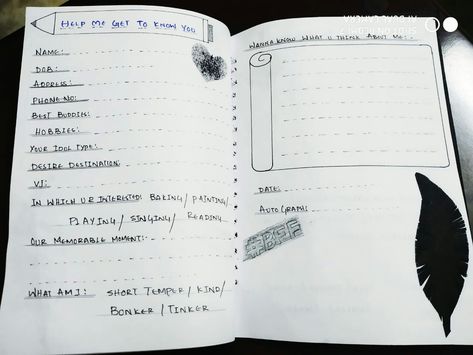 HELP ME GET TO KNOW YOU
NAME:
DOB:
ADDRESS:
PHONE NO:
BEST BUDDIES:
HOBBIES:
YOUR IDOL TYPE:
DESIRE DESTINATION:
VJ:
IN WHICH U R INTERESTED: BAKING/ PAINTING/
PLAYING/ SINGING/ READING
OUR MEMORABLE MOMENT:
WHAT AM I: SHORT TEMPER/ KIND/
BONKER/ TINKER
WANNA KNOW WHAT U THINK ABOUT ME:
DATE:
AUTOGRAPH:
#BFF